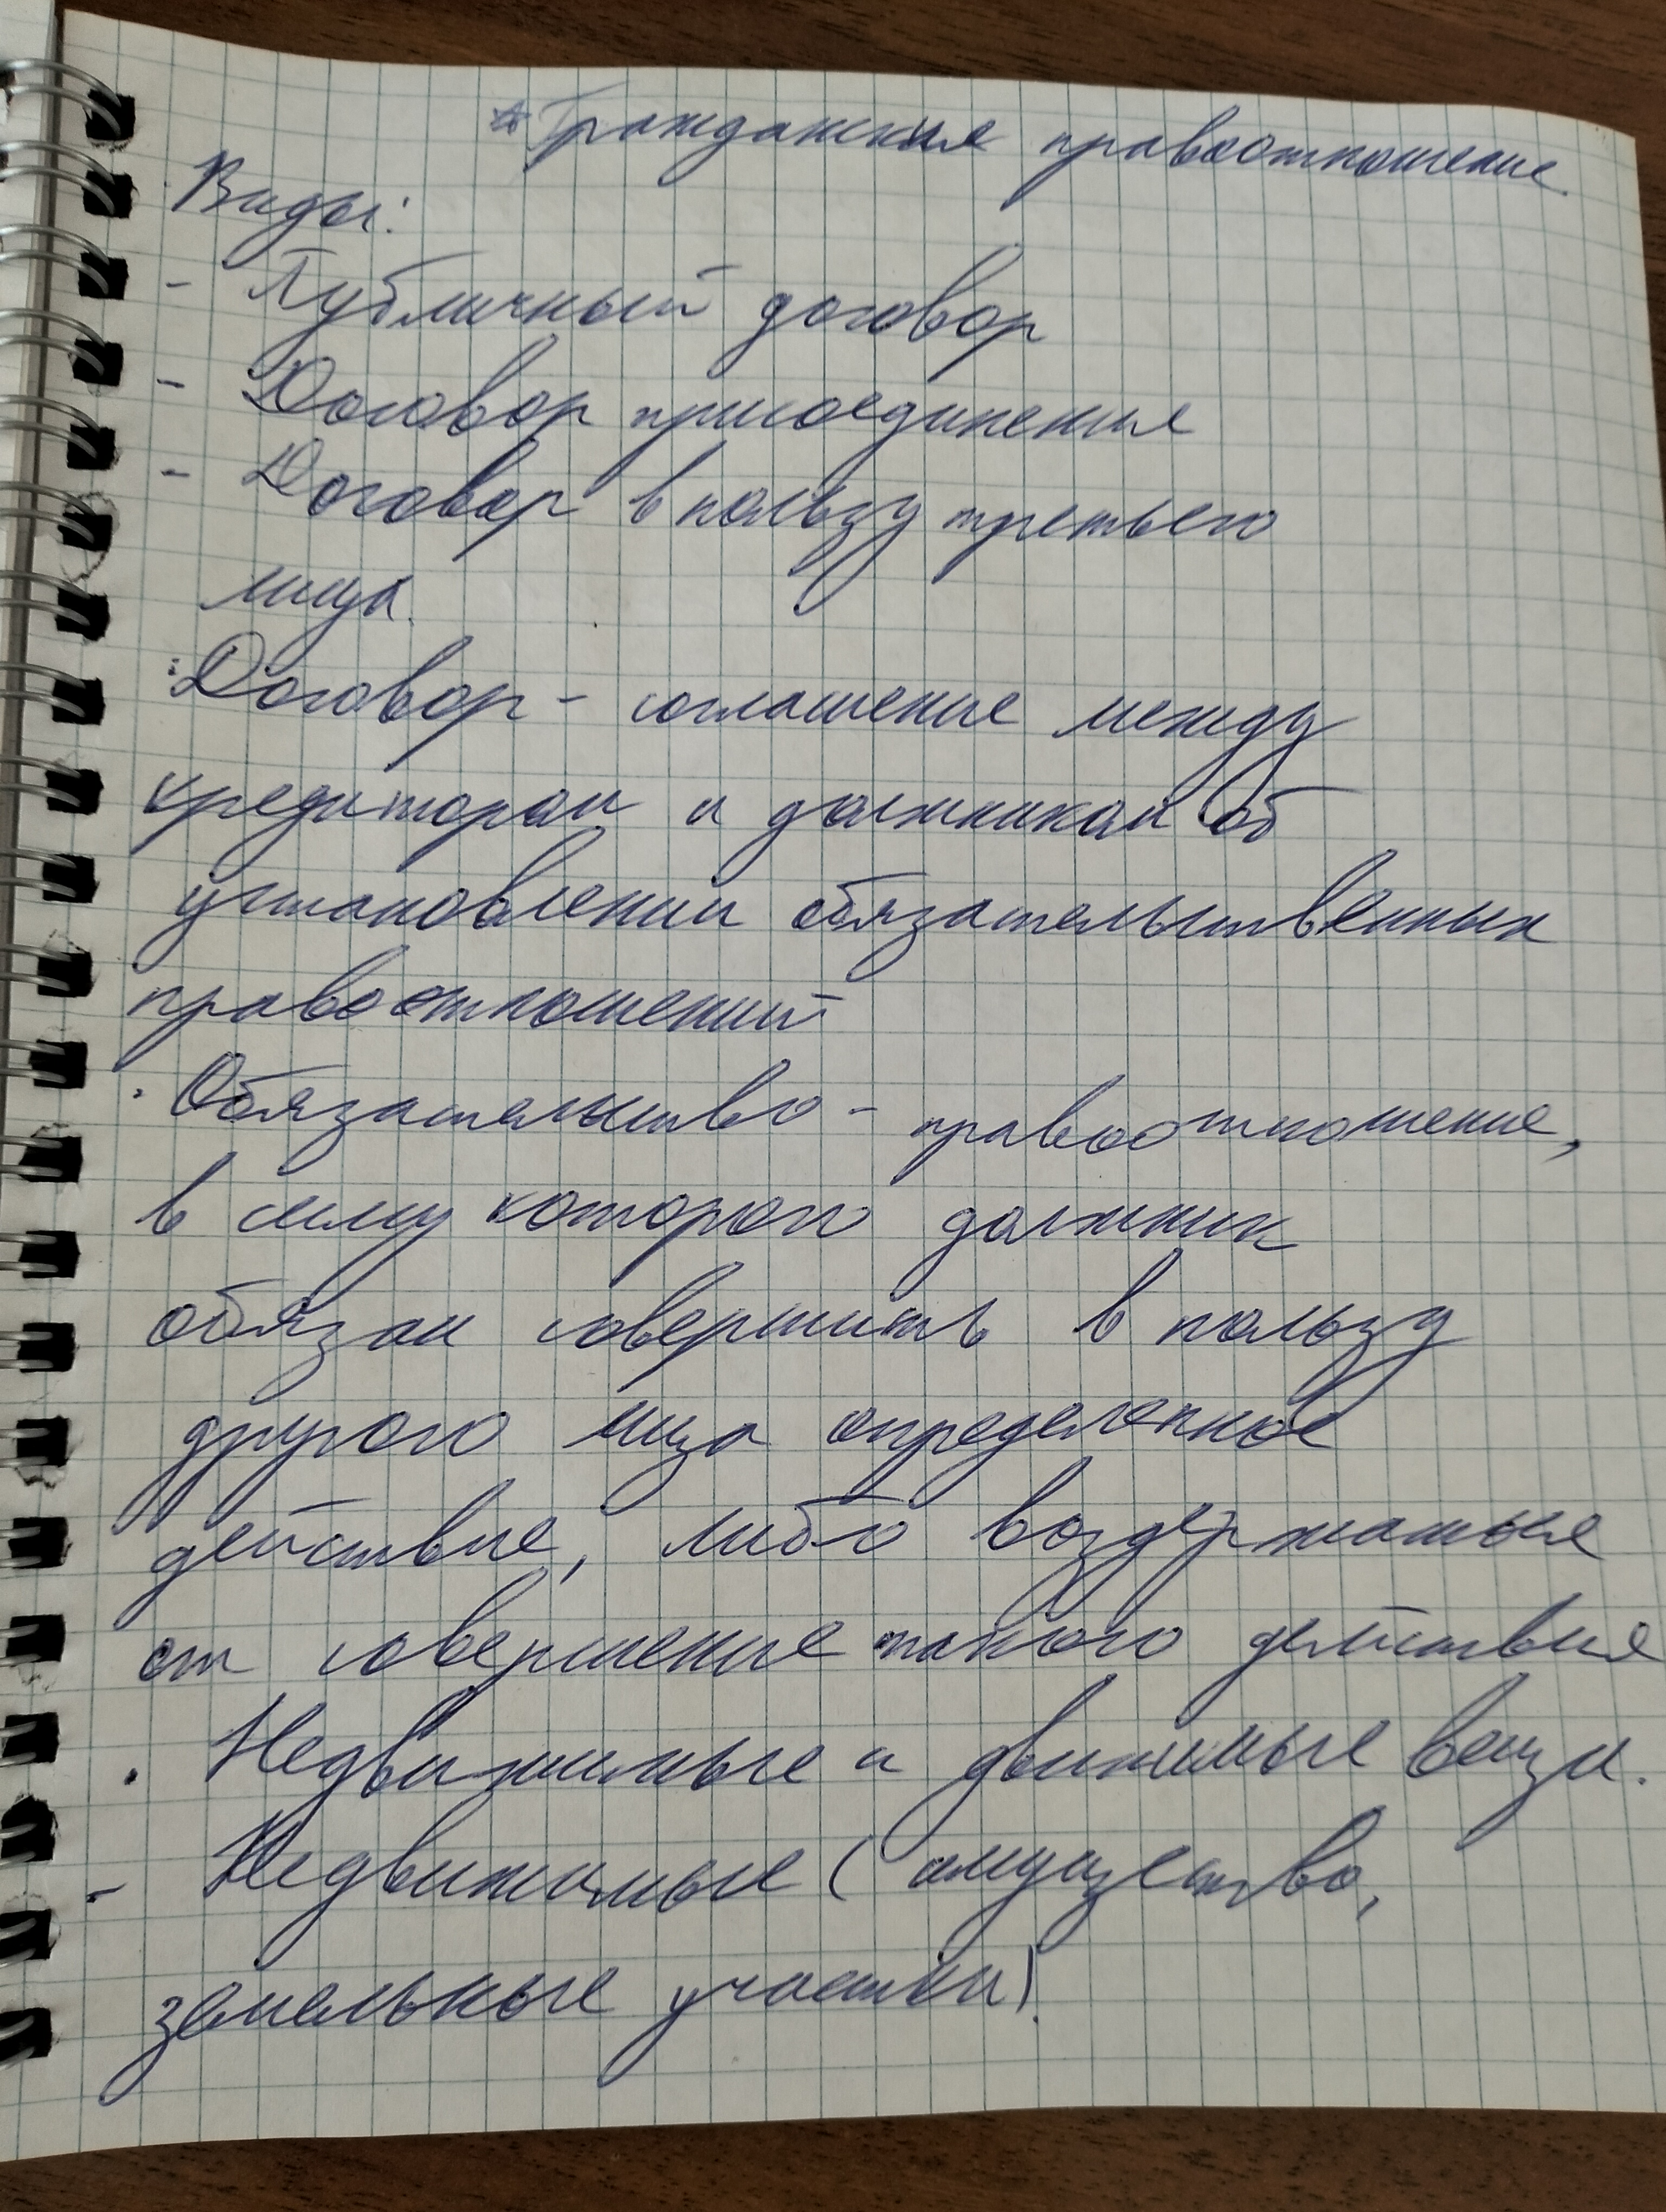 * Гражданские правоотношение.
Виды:
- Публичный договор
- Договор присоединение
- Договор в пользу третьего
лица.
: Договор - соглашение между
кредитором и должником об
установлении обязательственных
правоотношений
· Обязательство - правоотношение,
в силу которого должник
обязан совершить в пользу
другого лица определенное
действие, либо воздержаться
от совершение такого действие
· Недвижимые и движимые вещи.
- Недвижимые (имущество,
земельные участки).